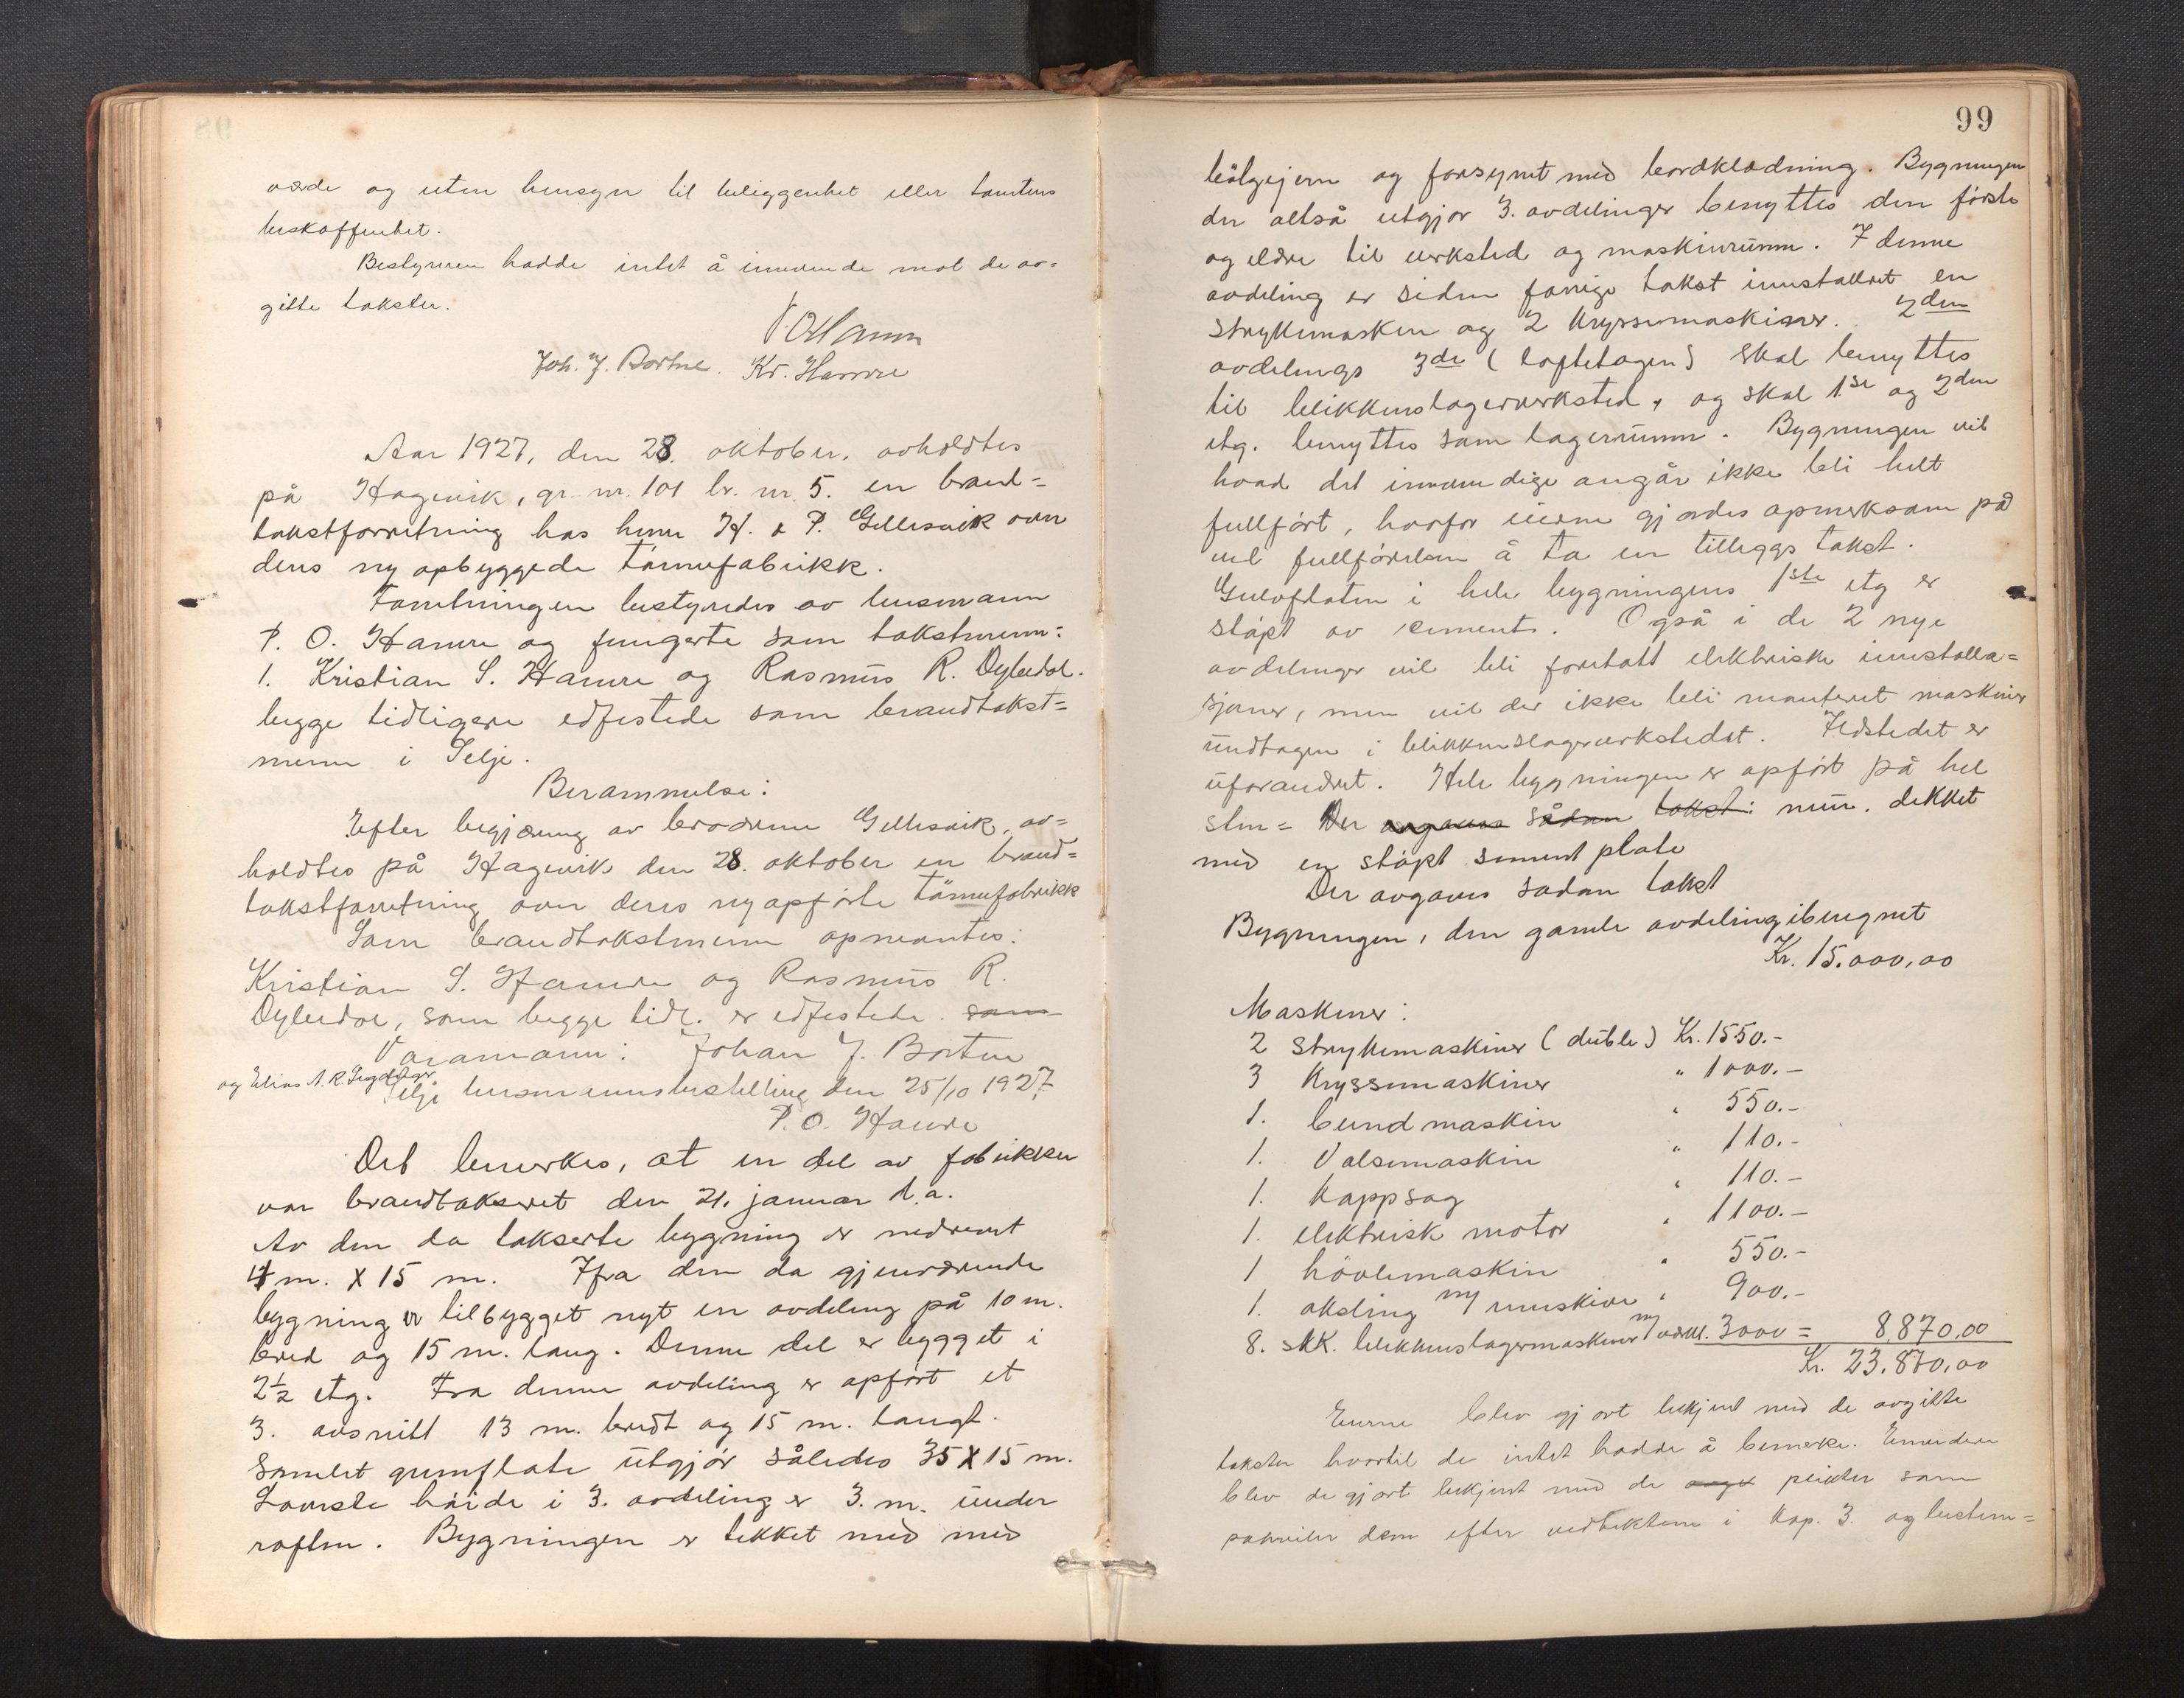 værde og uten hensyn til beliggenhet eller tomtens
beskaffenhet.
Bestyreren hadde intet å innvende mot de av=
gitte takster.
P O Hamre
Joh. J. Bortne. Kr. Hamre
Aar 1927, den 28. oktober, avholdtes
på Hagevik, gr. nr. 101 br. nr. 5. en brand=
takstforretning hos herr H. & P. Gillesvik over
deres ny opbyggede tönnefabrikk.
Forretningen bestyredes av lensmann
P. O. Hamre og fungerte som takstmenn:
1. Kristian S. Hamre og Rasmus R. Dybedal.
begge tidligere edfestede som brandtakst=
menn i Selje.
Berammelse:
Efter begjæring av brødrene Gillesvik, av=
holdtes på Hagevik den 28. oktober en brand=
takstforretning over deres nyopførte tönnefabrikk
Som brandtakstmenn opnevntes:
Kristian S. Hamre og Rasmus R.
Dybedal, som begge tidl. er edfestede. som
Varamann: Johan J. Bortne
og Elias A. R.
Selje lensmannsbestilling den 25/10 1927.
P. O. Hamre
Det bemerkes, at en del av fabrikken
var brandtakseret den 21. januar d.a.
Av den da takserte bygning er nedrevet
4 m. X 15 m. Ifra den da gjenværende
bygning er tilbygget nyt en avdeling på 10 m.
bred og 15 m. lang. Denne del er bygget i
2½ etg. Fra denne avdeling er opført et
3. avsnitt 13 m. bredt og 15 m. langt.
Samlet grunnflate utgjør således 35 X 15 m.
Laveste höide i 3. avdeling er 3. m. under
raften. Bygningen er tekket med med
99
bölgejern og forsynt med bordklædning. Bygningen
der altså utgjør 3. avdelinger benyttes den første
og eldre til verksted og maskinrumm. I denne
avdeling er siden forrige takst innstalleret en
strykemaskin og 2 kryssemaskiner. 2den
avdelings 3de (loftetagen) skal benyttes
til blikkenslagerverksted, og skal 1ste og 2den
etg. benyttes som lagerrumm. Bygningen vil
hvad det innvendige angår ikke bli helt
fullført, hvorfor eierne gjordes opmerksom på
ved fullførelsen å ta en tilleggs takst.
Gulvflaten i hele bygningens 1ste etg er
støpt av sement. Også i de 2 nye
avdelinger vil bli foretatt elektriske innstalla=
sjoner, men vil der ikke bli monteret maskiner
undtagen i blikkenslagerverkstedet. Ildstedet er
uforandret. Hele bygningen er opført på hel
sten= Der avgaves sådan takst: mur. dekket
med en støpt sement plate
Der avgaves sådan takst
Bygningen, den gamle avdeling iberegnet
Kr. 15.000,00
Maskiner:
2 strykemaskiner (duble) Kr. 1550.-
3 kryssemaskiner " 1000.-
1. bundmaskin " 550.-
1. Valsemaskin " 110.-
1. kappsag " 110.-
1. elektrisk motor " 1100.-
1 hövlemaskin " 550.-
1. aksling m/ remskiver " 900.-
8. stk. blikkenslagermaskiner m/ verkt. 3000 = 8.870,00
Kr. 23.870,00
Eierne blev gjort bekjent med de avgitte
takster hvortil de intet hadde å bemerke. Enn videre
blev de gjort bekjent med de plikter som
påhviler dem efter vedtektene i kap. 3. og bestem=